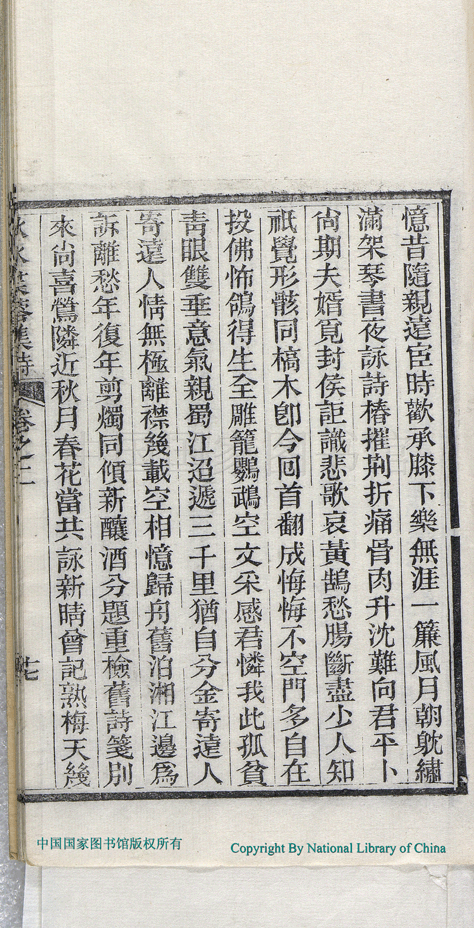 憶昔隨親遠宦時歡承膝下樂無涯一簾風月朝躭繡
滿架琴書夜詠詩椿摧荆折痛骨肉升沈難向君平卜
尙期夫婿覓封侯詎識悲歌哀黃鵠愁腸斷盡少人知
祇覺形骸同槁木卽今回首翻成悔悔不空門多自在
投佛怖鴿得生全雕籠鸚鵡空文采感君憐我此孤貧
靑眼雙垂意氣親蜀江迢遞三千里猶自分金寄遠人
寄遠人情無極離襟幾載空相憶歸舟舊泊湘江邊爲
訴離愁年復年剪燭同傾新釀酒分題重檢舊詩箋別
來尙喜鶯隣近秋月春花當共詠新晴曾記熟梅天幾
秋水芙蓉集詩
卷之二
十七
中国国家图书馆版权所有
Copyright By National Library of China